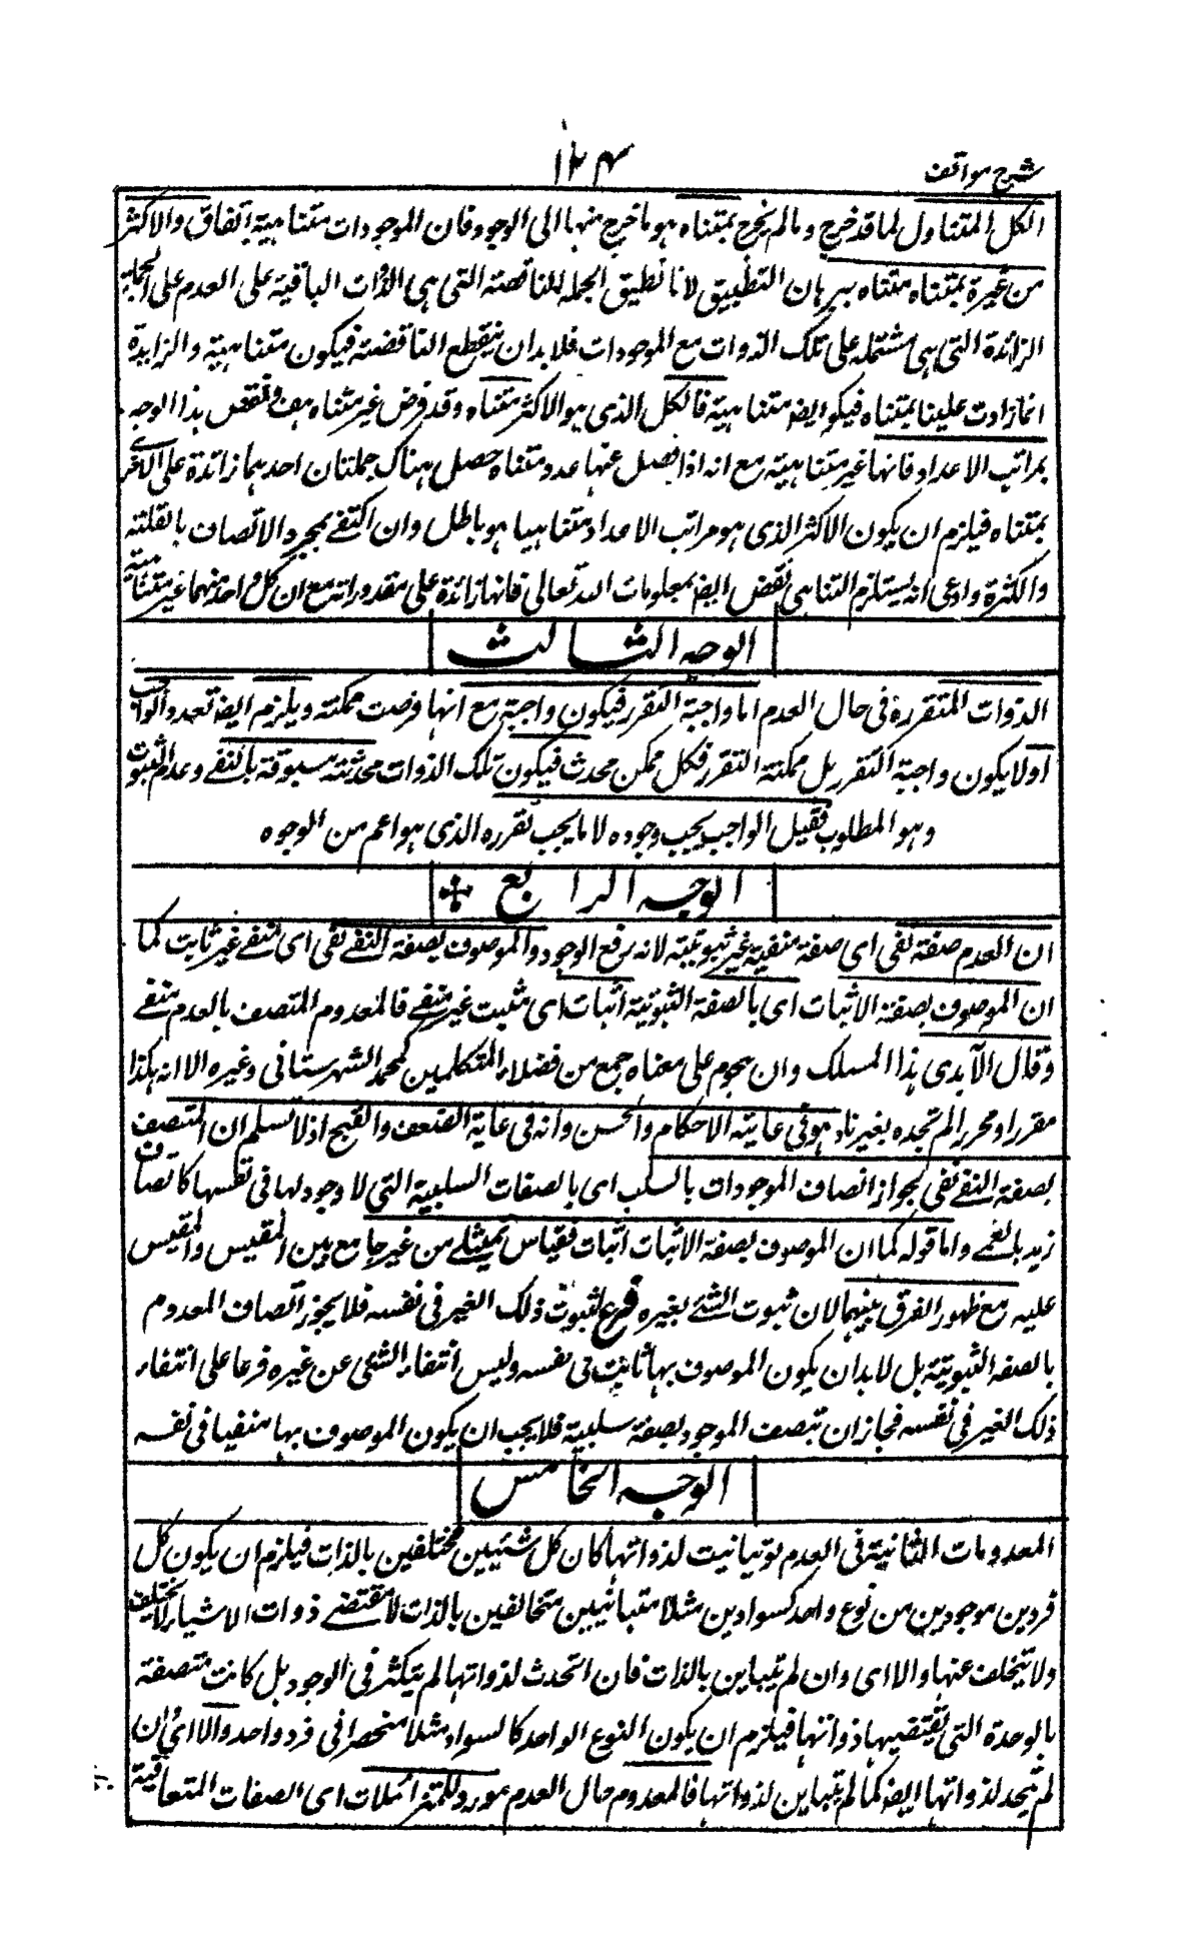 شرح مواقف
۱۲۴
الكل المتناول لما قد خرج وما لم يخرج بمتناه هو ما خرج منها الى الوجود فان الموجودات متناهية اتفاقا والاكثر
من غيره بمتناه متناه ببرهان التطبيق لانا نطبق الجملة الناقصة التى هى الذوات الباقية على العدم على الجملة
الزائدة التى هى مشتملة على تلك الذوات مع الموجودات فلا بد ان ينقطع الناقصة فيكون متناهية والزايدة
انما زادت عليها بمتناه فيكون ايضا متناهية فالكل الذى هو الاكثر متناه وقد فرض غير متناه هف ونقض هذا الوجه
بمراتب الاعداد فانها غير متناهية مع انه اذا فصل عنها عدد متناه حصل هناك جملتان احدهما زائدة على الاخرى
بمتناه فيلزم ان يكون الاكثر الذى هو مراتب الاعداد متناهيا هو باطل وان اكتفى بمجرد الاتصاف بالقلة
والكثرة وادعى انه يستلزم التناهى نقض ايضا بمعلومات الله تعالى فانها زائدة على مقدوراته مع ان كل واحد منهما غير متناهية
الوجه الثالث
الذوات المتقررة فى حال العدم اما واجبة التقرر فيكون واجبة مع انها فرضت ممكنة ويلزم ايضا تعدد الواجب
او لا يكون واجبة التقرر بل ممكنة التقرر فكل ممكن محدث فيكون تلك الذوات محدثة مسبوقة بالنفى وعدم الثبوت
وهو المطلوب فقيل الواجب يجب وجوده لا ما يجب تقرره الذى هو اعم من الوجوه
الوجه الرابع
ان العدم صفة نفى اى صفة منفية غير ثبوتية لانه يرفع الوجود والموصوف بصفة النفى نفى اى منفى غير ثابت كما
ان الموصوف بصفة الاثبات اى بالصفة الثبوتية اثبات اى مثبت غير منفى فالمعدوم المتصف بالعدم منفى
وقال الآمدى هذا المسلك وان حوم على معناه جمع من فضلاء المتكلمين كمحمد الشهرستانى وغيره الا انه هكذا
مقررا ومحررا لم تجده بغيرنا وهو فى غاية الاحكام والحسن وانه فى غاية الضعف والقبح اذ لا نسلم ان المتصف
بصفة النفى نفى لجواز اتصاف الموجودات بالسلب اى بالصفات السلبية التى لا وجود لها فى نفسها كاتصاف
زيد بالعمى واما قوله كما ان الموصوف بصفة الاثبات اثبات فقياس تمثيلى من غير جامع بين المقيس والمقيس
عليه مع ظهور الفرق بينهما لان ثبوت الشئ لغيره فرع لثبوت ذلك الغير فى نفسه فلا يجوز اتصاف المعدوم
بالصفة الثبوتية بل لا بد ان يكون الموصوف بها ثابت فى نفسه وليس انتفاء الشئ عن غيره فرعا على انتفاء
ذلك الغير فى نفسه فجاز ان تتصف الموجود بصفة سلبية فلا يجب ان يكون الموصوف بها منفيا فى نفسه
الوجه الخامس
المعدومات الثابتة فى العدم لو تباينت لذواتها كان كل شيئين مختلفين بالذات فيلزم ان يكون كل
فردين موجودين من نوع واحد كسوادين مثلا متباينين متخالفين بالذات لا مقتضى ذوات الاشياء لا يختلف
ولا يتخلف عنها والا اى وان لم يتباين بالذات فان اتحدت لذواتها لم يتكثر فى الوجود بل كانت متصفة
بالوحدة التى تقتضيها ذواتها فيلزم ان يكون النوع الواحد كالسواد مثلا منحصرا فى فرد واحد والا اى وان
لم يتحد لذواتها ايضا كما لم يتباين لذواتها فالمعدوم حال العدم مورد للمتزائلات اى الصفات المتعاقبة